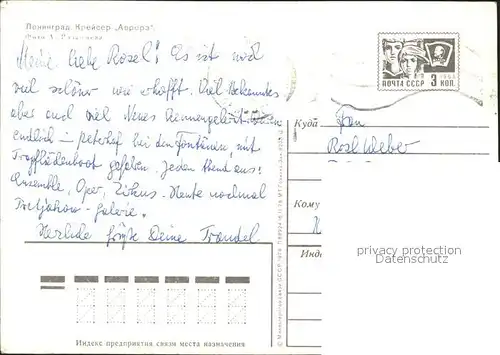 Ленинград. Крейсер „Аврора".
Meine liebe Rosel! Es ist noch
viel schöner wie erhofft. Viel Bekanntes
aber auch viel Neues kennengelernt.
endlich in Petershof bei den Fontänen, mit
Tragflächenboot gefahren. Jeden Abend aus:
Ensemble, Oper, Zirkus. Heute nochmal
Tretjakow-Galerie.
Herzliche Grüße Deine Traudel.
ПОЧТА СССР 3 КОП.
Куда Frau
Rosl Weber
Кому
privacy protection
DarkFoxx.com
Индекс предприятия связи места назначения